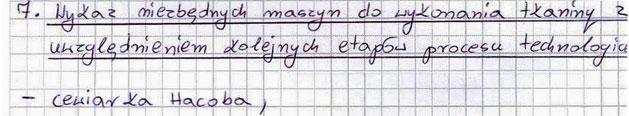 7. Wykaz niezbędnych maszyn do wykonania tkaniny z
uwzględnieniem kolejnych etapów procesu technologic
- cewiarka Hacoba,